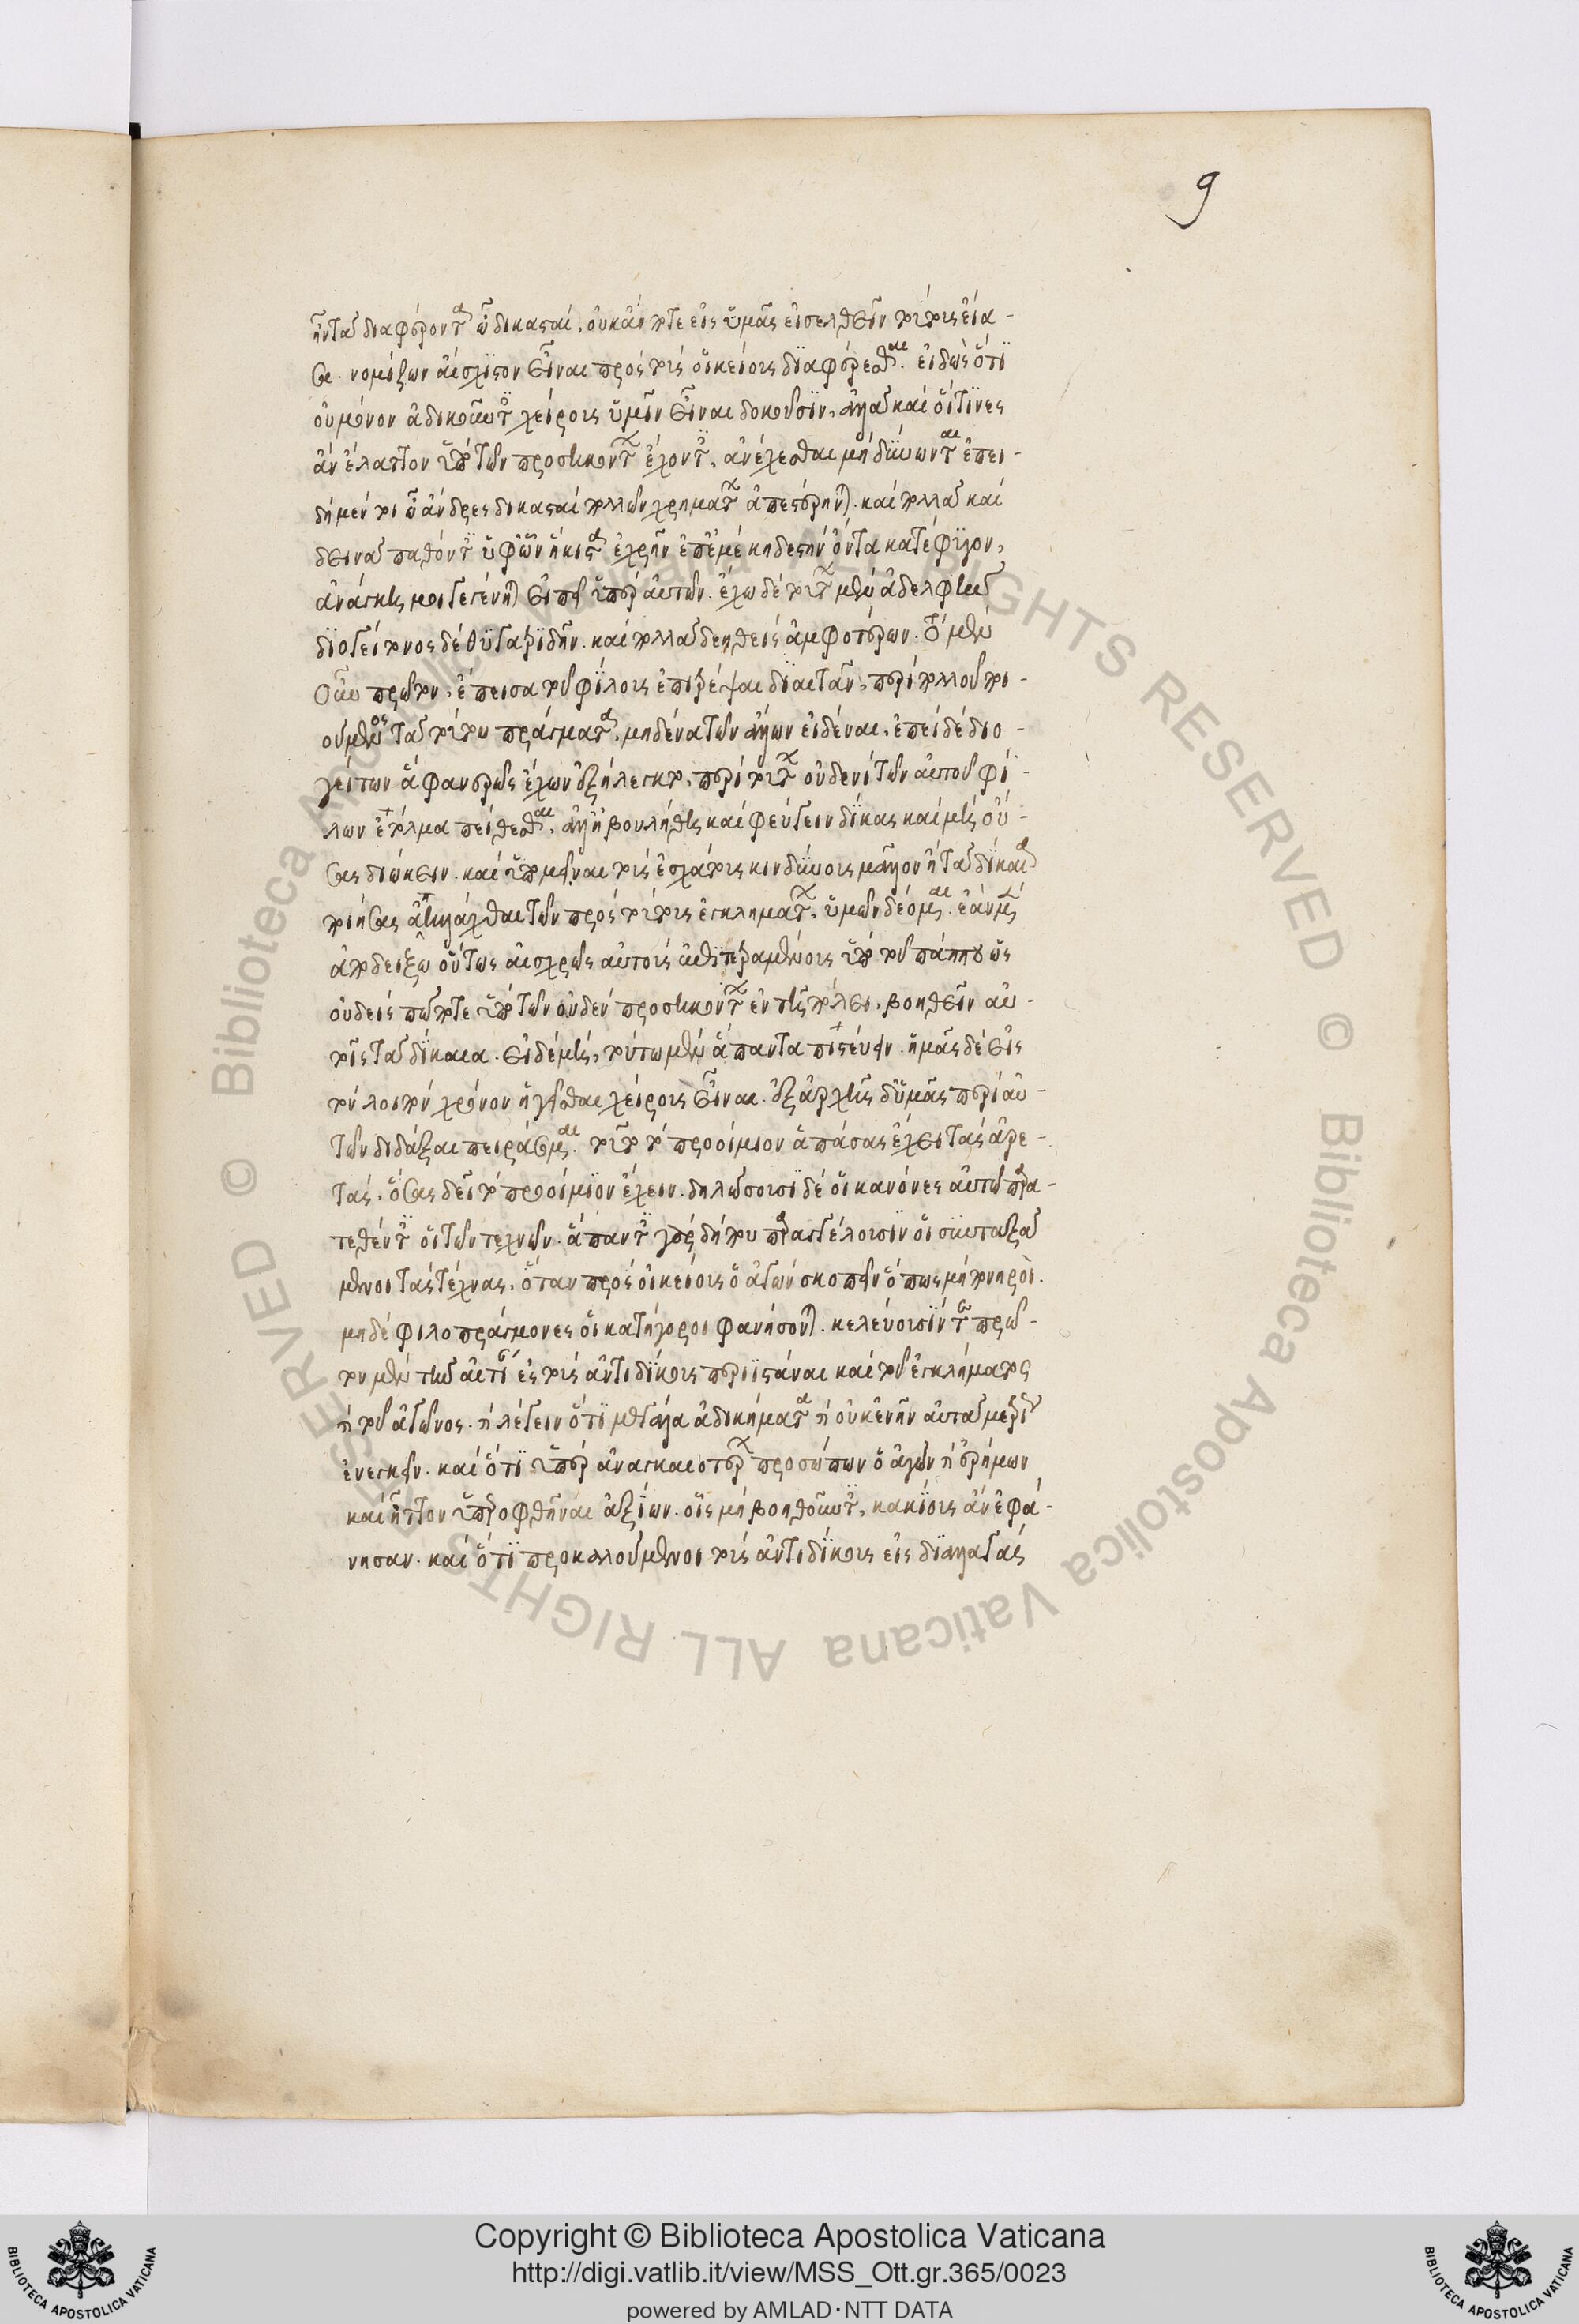 9
ἦν τὰ διαφέροντα ὦ δικασταί, οὐκ ἄν ποτε εἰς ὑμᾶς εἰσελθεῖν τούτους εἴα-
σα. νομίζων αἴσχιστον εἶναι πρὸς τοὺς οἰκείους διαφέρεσθαι. εἰδὼς ὅτι
οὐ μόνον ἀδικοῦντες χείρους ὑμῖν εἶναι δοκοῦσιν, ἀλλὰ καὶ οἵτινες
ἂν ἔλαττον ὑπὸ τῶν προσηκόντων ἔχοντες, ἀνέχεσθαι μὴ δύνωνται ἐπει-
δὴ μέν τοι ὦ ἄνδρες δικασταὶ πολλῶν χρημάτων ἀπεστέρηνται. καὶ πολλὰ καὶ
δεινὰ παθόντες ὑφ' ὧν ἥκιστα ἐχρῆν ἐπ' ἐμὲ κηδεστὴν ὄντα κατέφυγον,
ἀνάγκη μοι γεγένηται εἰπεῖν ὑπὲρ αὐτῶν. ἔχω δὲ τούτων μὲν ἀδελφὴν
διογείτονος δὲ θυγατριδῆν. καὶ πολλὰ δεηθεὶς ἀμφοτέρων. τὸ μὲν
οὖν πρῶτον, ἔπεισα τοῦ φίλοις ἐπιτρέψαι δίαιταν, περὶ πολλοῦ ποι-
ούμενος τὰ τούτου πράγματα, μηδένα τῶν ἄλλων εἰδέναι, ἐπεὶ δὲ διο-
γείτων ἃ φανερῶς ἔχων ἐξήλεγκτο, περὶ τούτων οὐδενὶ τῶν αὐτοῦ φί-
λων ἐτόλμα πείθεσθαι, ἀλλ' ἠβουλήθη καὶ φεύγειν δίκας καὶ μὴ οὔ-
σας διώκειν. καὶ ὑπομεῖναι τοὺς ἐσχάτους κινδύνους μᾶλλον ἢ τὰ δίκαια
ποιήσας ἀπηλλάχθαι τῶν πρὸς τούτους ἐγκλημάτων, ὑμῶν δέομαι. ἐὰν μὲν
ἀποδείξω οὕτως αἰσχρῶς αὐτοὺς ἐπιτετραμμένους ὑπὸ τοῦ πάππου ὡς
οὐδεὶς πώποτε ὑπὸ τῶν οὐδὲν προσηκόντων ἐν τῇ πόλει, βοηθεῖν αὐ-
τοῖς τὰ δίκαια. εἰ δὲ μή, τούτω μὲν ἅπαντα πιστεύειν. ἡμᾶς δὲ εἰς
τὸν λοιπὸν χρόνον ἡγεῖσθαι χείρους εἶναι. ἐξ ἀρχῆς δ' ὑμᾶς περὶ αὐ-
τῶν διδάξαι πειράσομαι. τοῦτο τὸ προοίμιον ἁπάσας ἔχει τὰς ἀρε-
τάς, ὅσας δεῖ τὸ προοίμιον ἔχειν. δηλώσουσι δὲ οἱ κανόνες αὐτῷ παρα-
τεθέντες οἱ τῶν τεχνῶν. ἅπαντες γὰρ δήπου παραγγέλουσιν οἱ συνταξά
μενοι τὰς τέχνας, ὅταν πρὸς οἰκείους ὁ ἀγὼν σκοπεῖν ὅπως μὴ πονηροὶ.
μηδὲ φιλοπράγμονες οἱ κατήγοροι φανήσονται. κελεύουσίν τε πρῶ-
τον μὲν τὴν αἰτίαν εἰς τοὺς ἀντιδίκους περιϊστάναι καὶ τοῦ ἐγκλήματος
ἢ τοῦ ἀγῶνος. ἢ λέγειν ὅτι μεγάλα ἀδικήματα ἢ οὐκ ἐνῆν αὐτὰ μετρίως
ἐνεγκεῖν. καὶ ὅτι ὑπὲρ ἀναγκαιοτέρων προσώπων ὁ ἀγὼν ἢ ἐρήμων
καὶ ἧττον ὑπεροφθῆναι ἀξίων. οἷς μὴ βοηθοῦντες, κακίους ἂν ἐφά-
νησαν. καὶ ὅτι προκαλούμενοι τοὺς ἀντιδίκους εἰς διαλλαγὰς
Copyright © Biblioteca Apostolica Vaticana
http://digi.vatlib.it/view/MSS_Ott.gr.365/0023
powered by AMLAD·NTT DATA